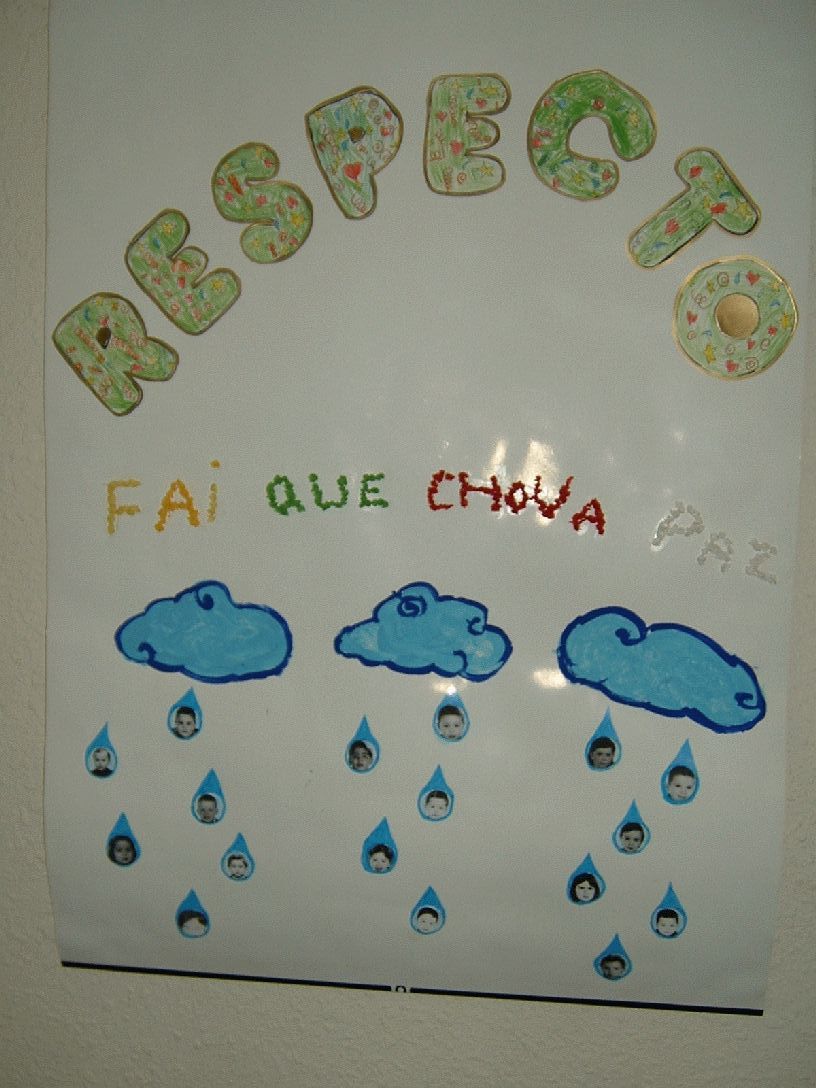 RESPECTO
FAi QUE CHOVA PAZ